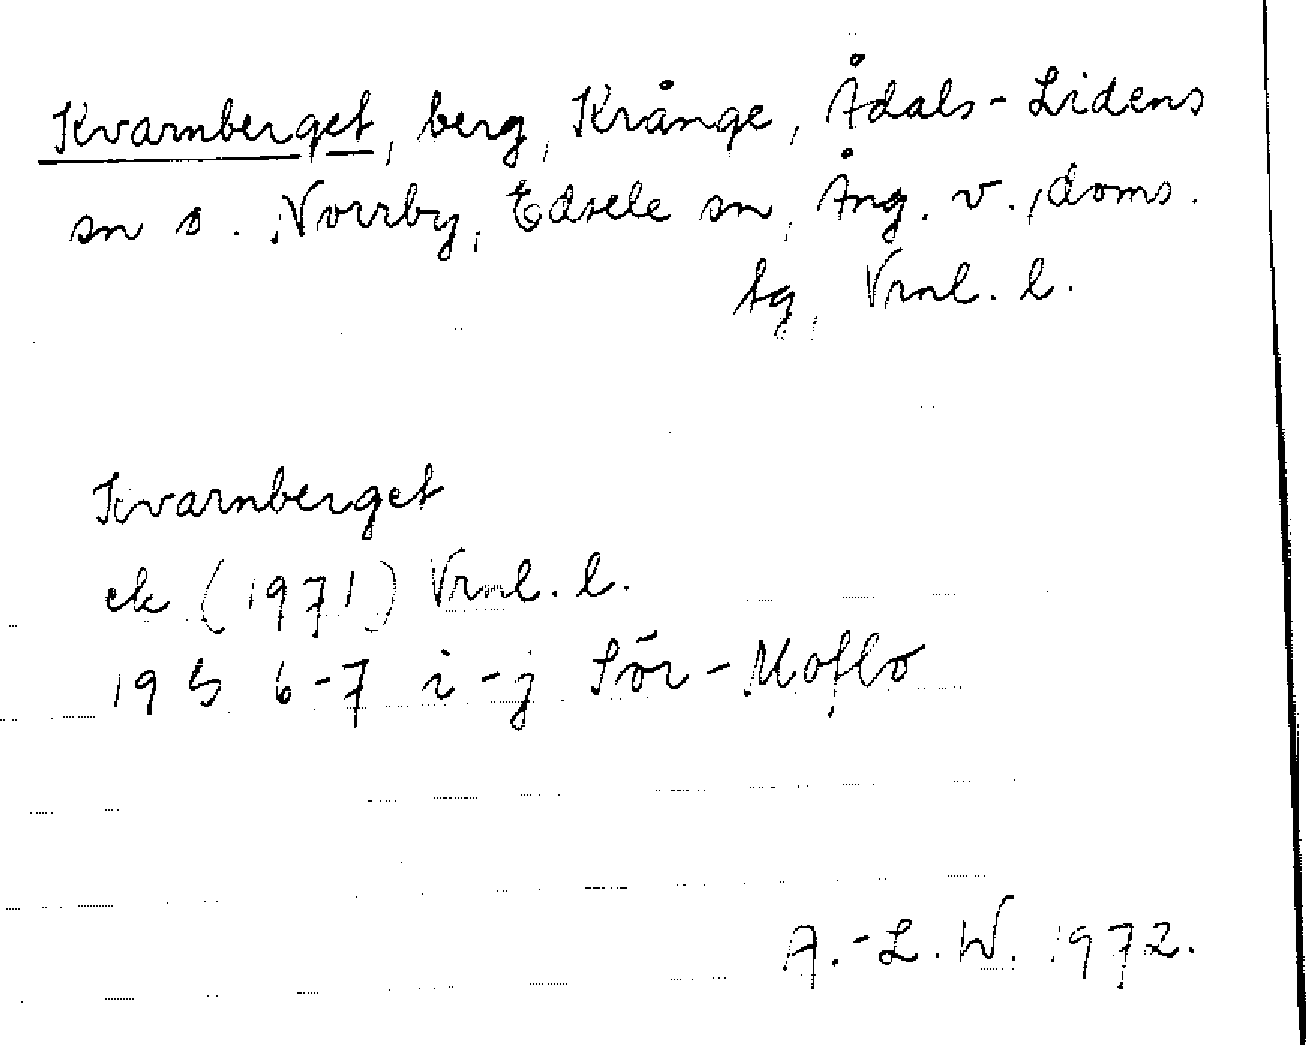 Kvarnberget, berg, Krånge, Ådals-Lidens
sn o. Norrby, Edsele sn, Ång. v., doms.
tg, Vrnl. l.
Kvarnberget
ek (1971) Vrnl. l.
19 H 6-7 i-j Sör-Moflo
A.-L.W. 1972.